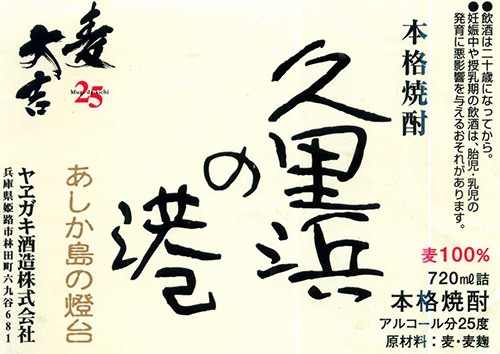 ●飲酒は二十歳になってから。
●妊娠中や授乳期の飲酒は、胎児・乳児の
発育に悪影響を与えるおそれがあります。
本格焼酎
久里浜
の
港
麦
大吉
25
Mugi daikichi
あしか島の燈台
ヤヱガキ酒造株式会社
兵庫県姫路市林田町六九谷681
麦100%
720㎖詰
本格焼酎
アルコール分25度
原材料：麦・麦麹